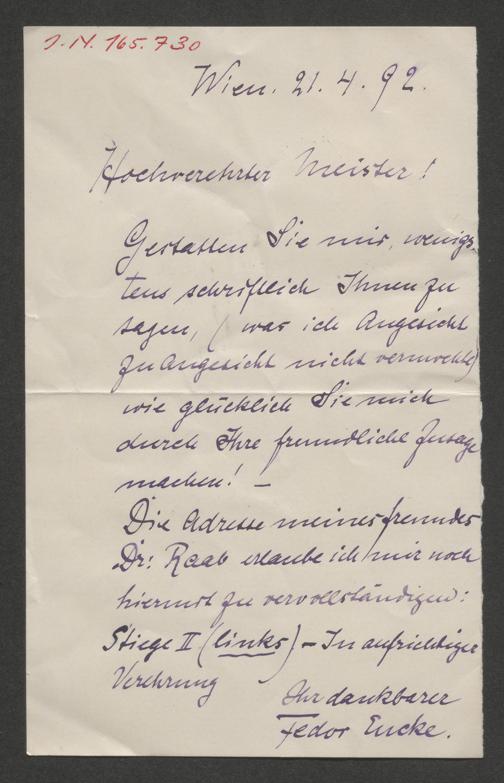 J.N. 165.730
Wien. 21. 4. 92.
Hochverehrter Meister!
Gestatten Sie mir, wenigs-
tens schriftlich Ihnen zu
sagen, (was ich Angesicht
zu Angesicht nicht vermochte)
wie glücklich Sie mich
durch Ihre freundliche Zusage
machen! –
Die Adresse meines freundes
Dr: Raab erlaube ich mir noch
hiermit zu vervollständigen:
Stiege II (links) – In aufrichtiger
Verehrung
Ihr dankbarer
Fedor Encke.